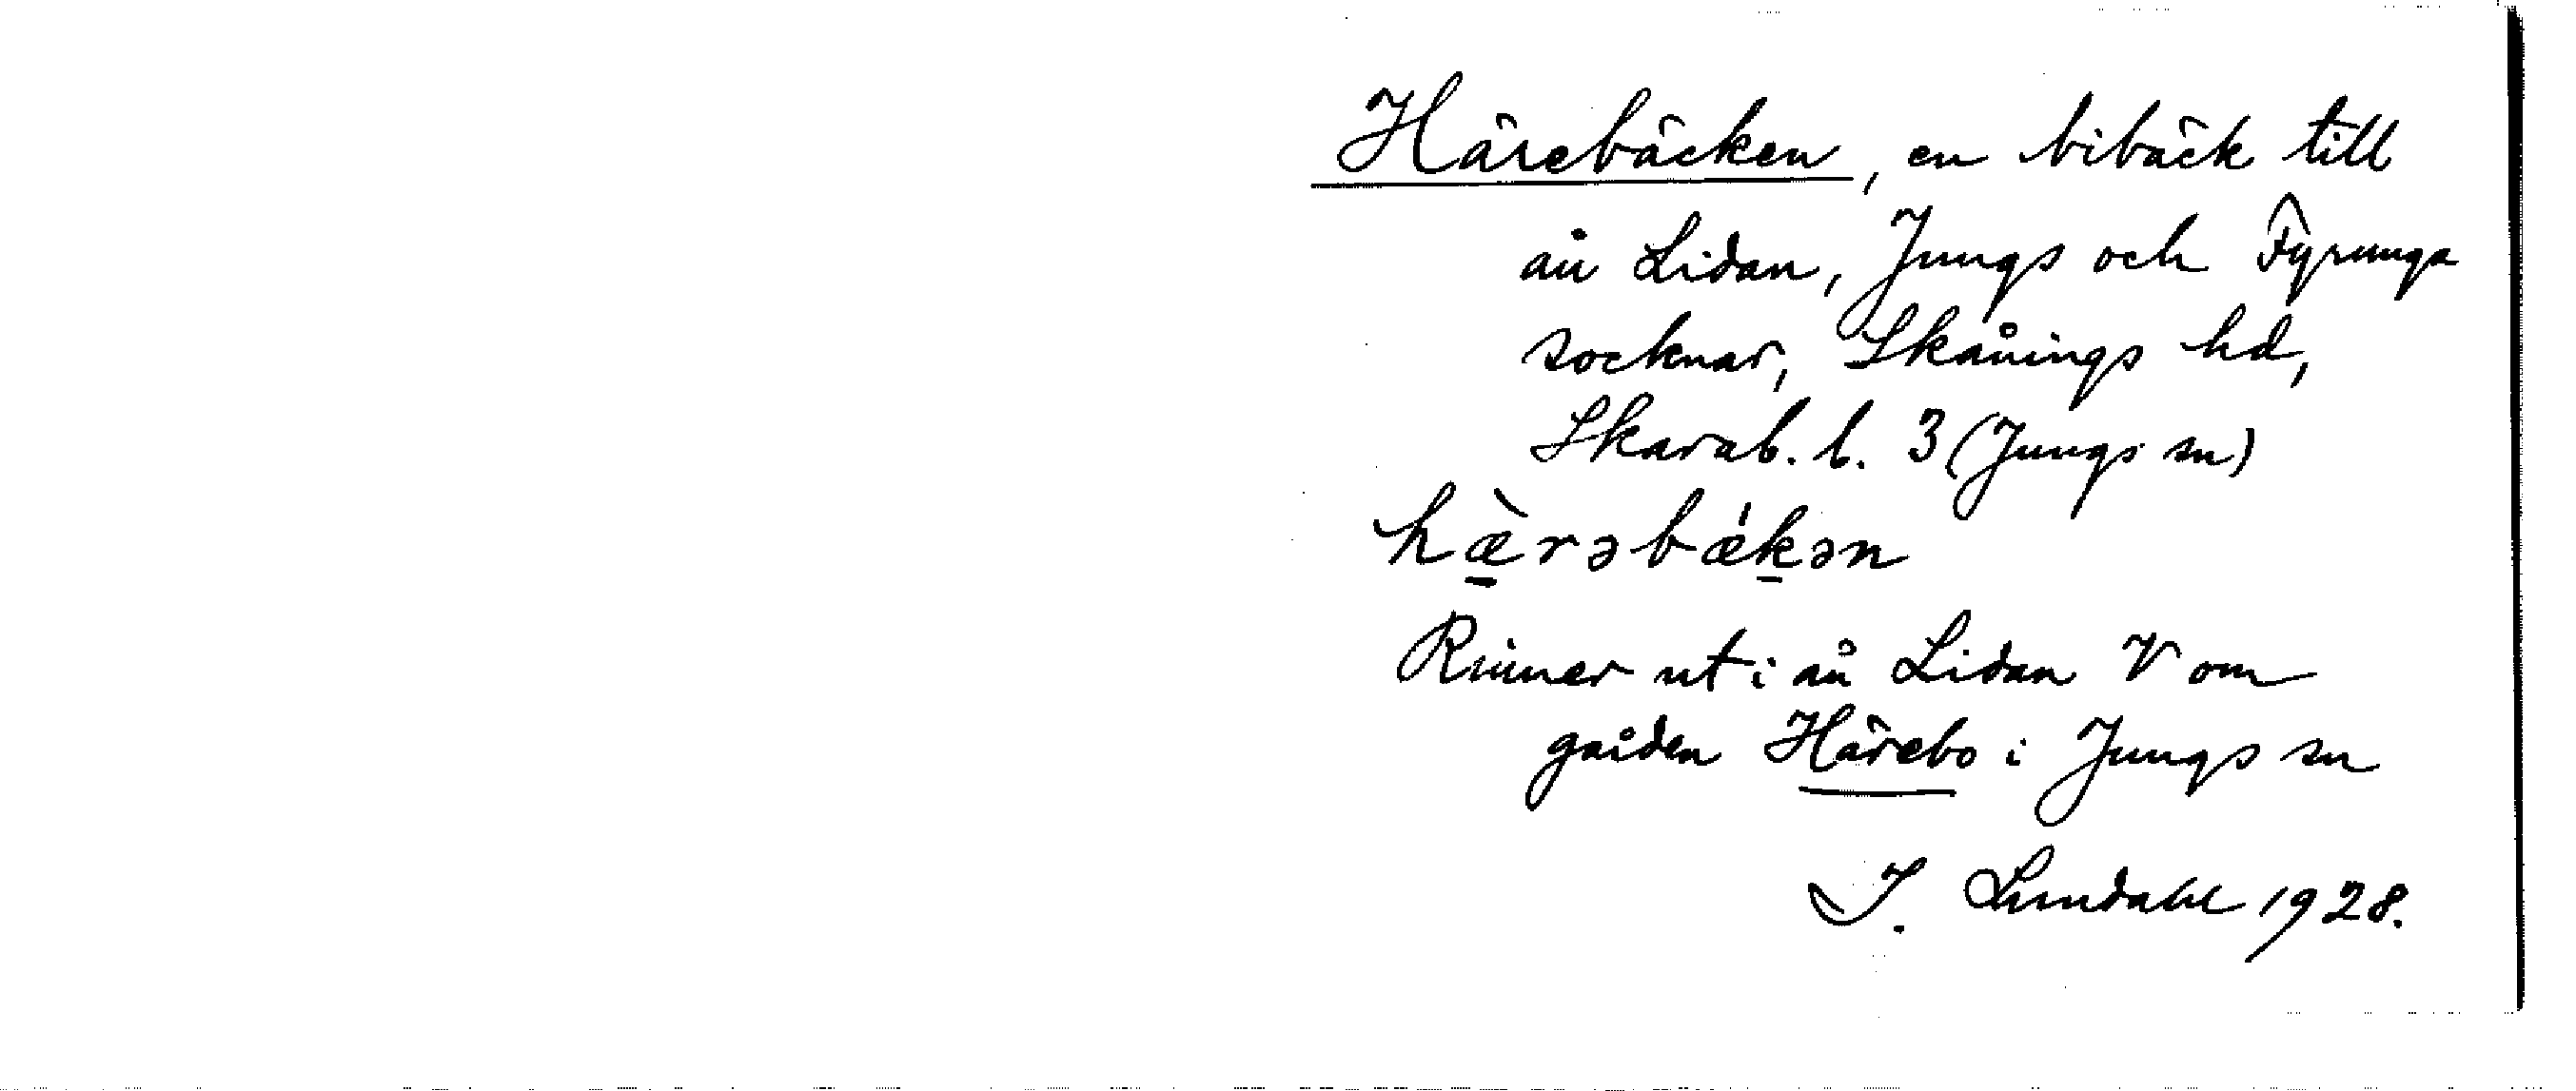 Härebäcken, en bibäck till
ån Lidan, Jungs och Fyrunga
socknar, Skånings hd,
Skarab. l. 3 (Jungs sn)
hæ̱̀rəbǽḵən
Rinner ut i ån Lidan V om
gården Härebo i Jungs sn
I. Lundahl 1928.